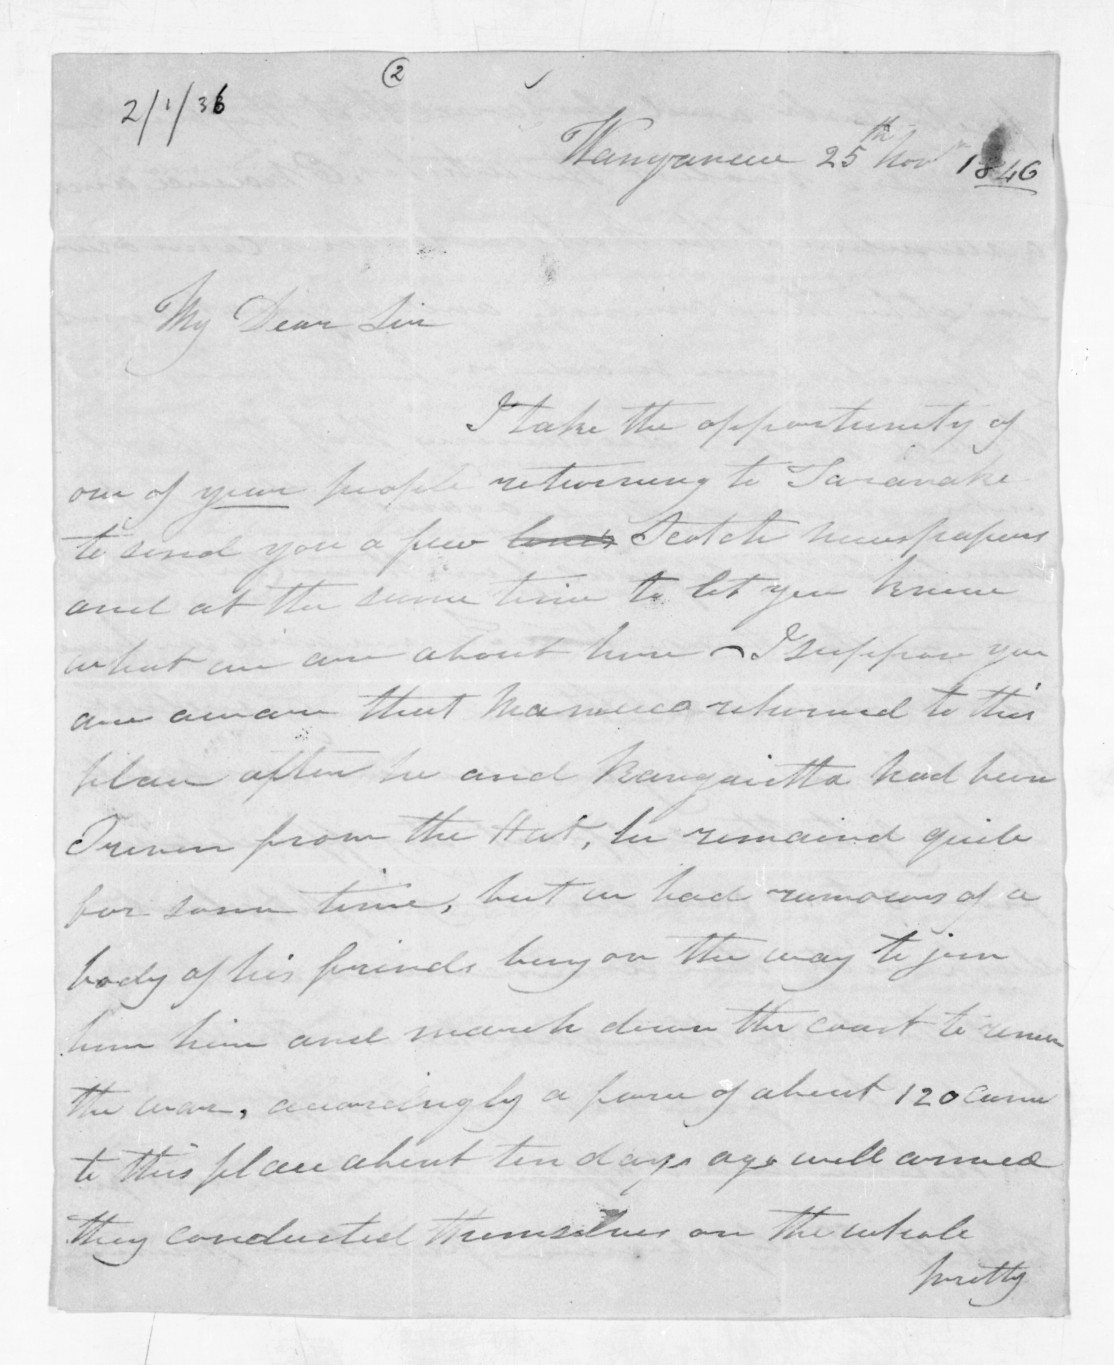 2/1/36
2
Wanganui 25th Novr 1846
My Dear Sir
I take the opportunity of
one of your people returning to Taranake
to send you a few Scotch newspapers
and at the same time to let you know
what we are about here – I suppose you
are aware that Mamuco returned to this
place after he and Rangaietta had been
Driven from the Hut, he remaind quite
for some time, but we had rumours of a
body of his friends being on the way to join
him him and march down the coast to renew
the war, accordingly a force of about 120 came
to this place about ten days ago well armed
they conducted themselves on the whole
pretty